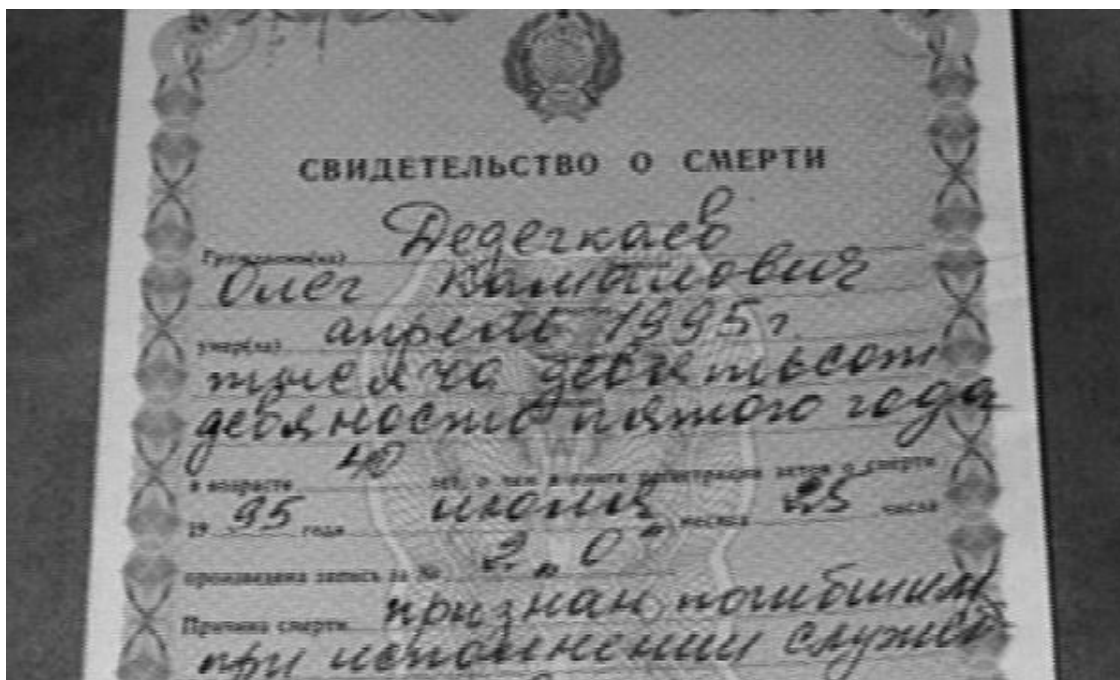 СВИДЕТЕЛЬСТВО О СМЕРТИ
Гражданин(ка) Дедегкаев
Олег
умер(ла) апрель 1995 г.
тысяча девятьсот
девяносто пятого года
в возрасте 40 лет, о чем в книге регистрации актов о смерти
19 95 года июля месяца 25 числа
произведена запись за №
Причина смерти признан погибшим
при исполнении